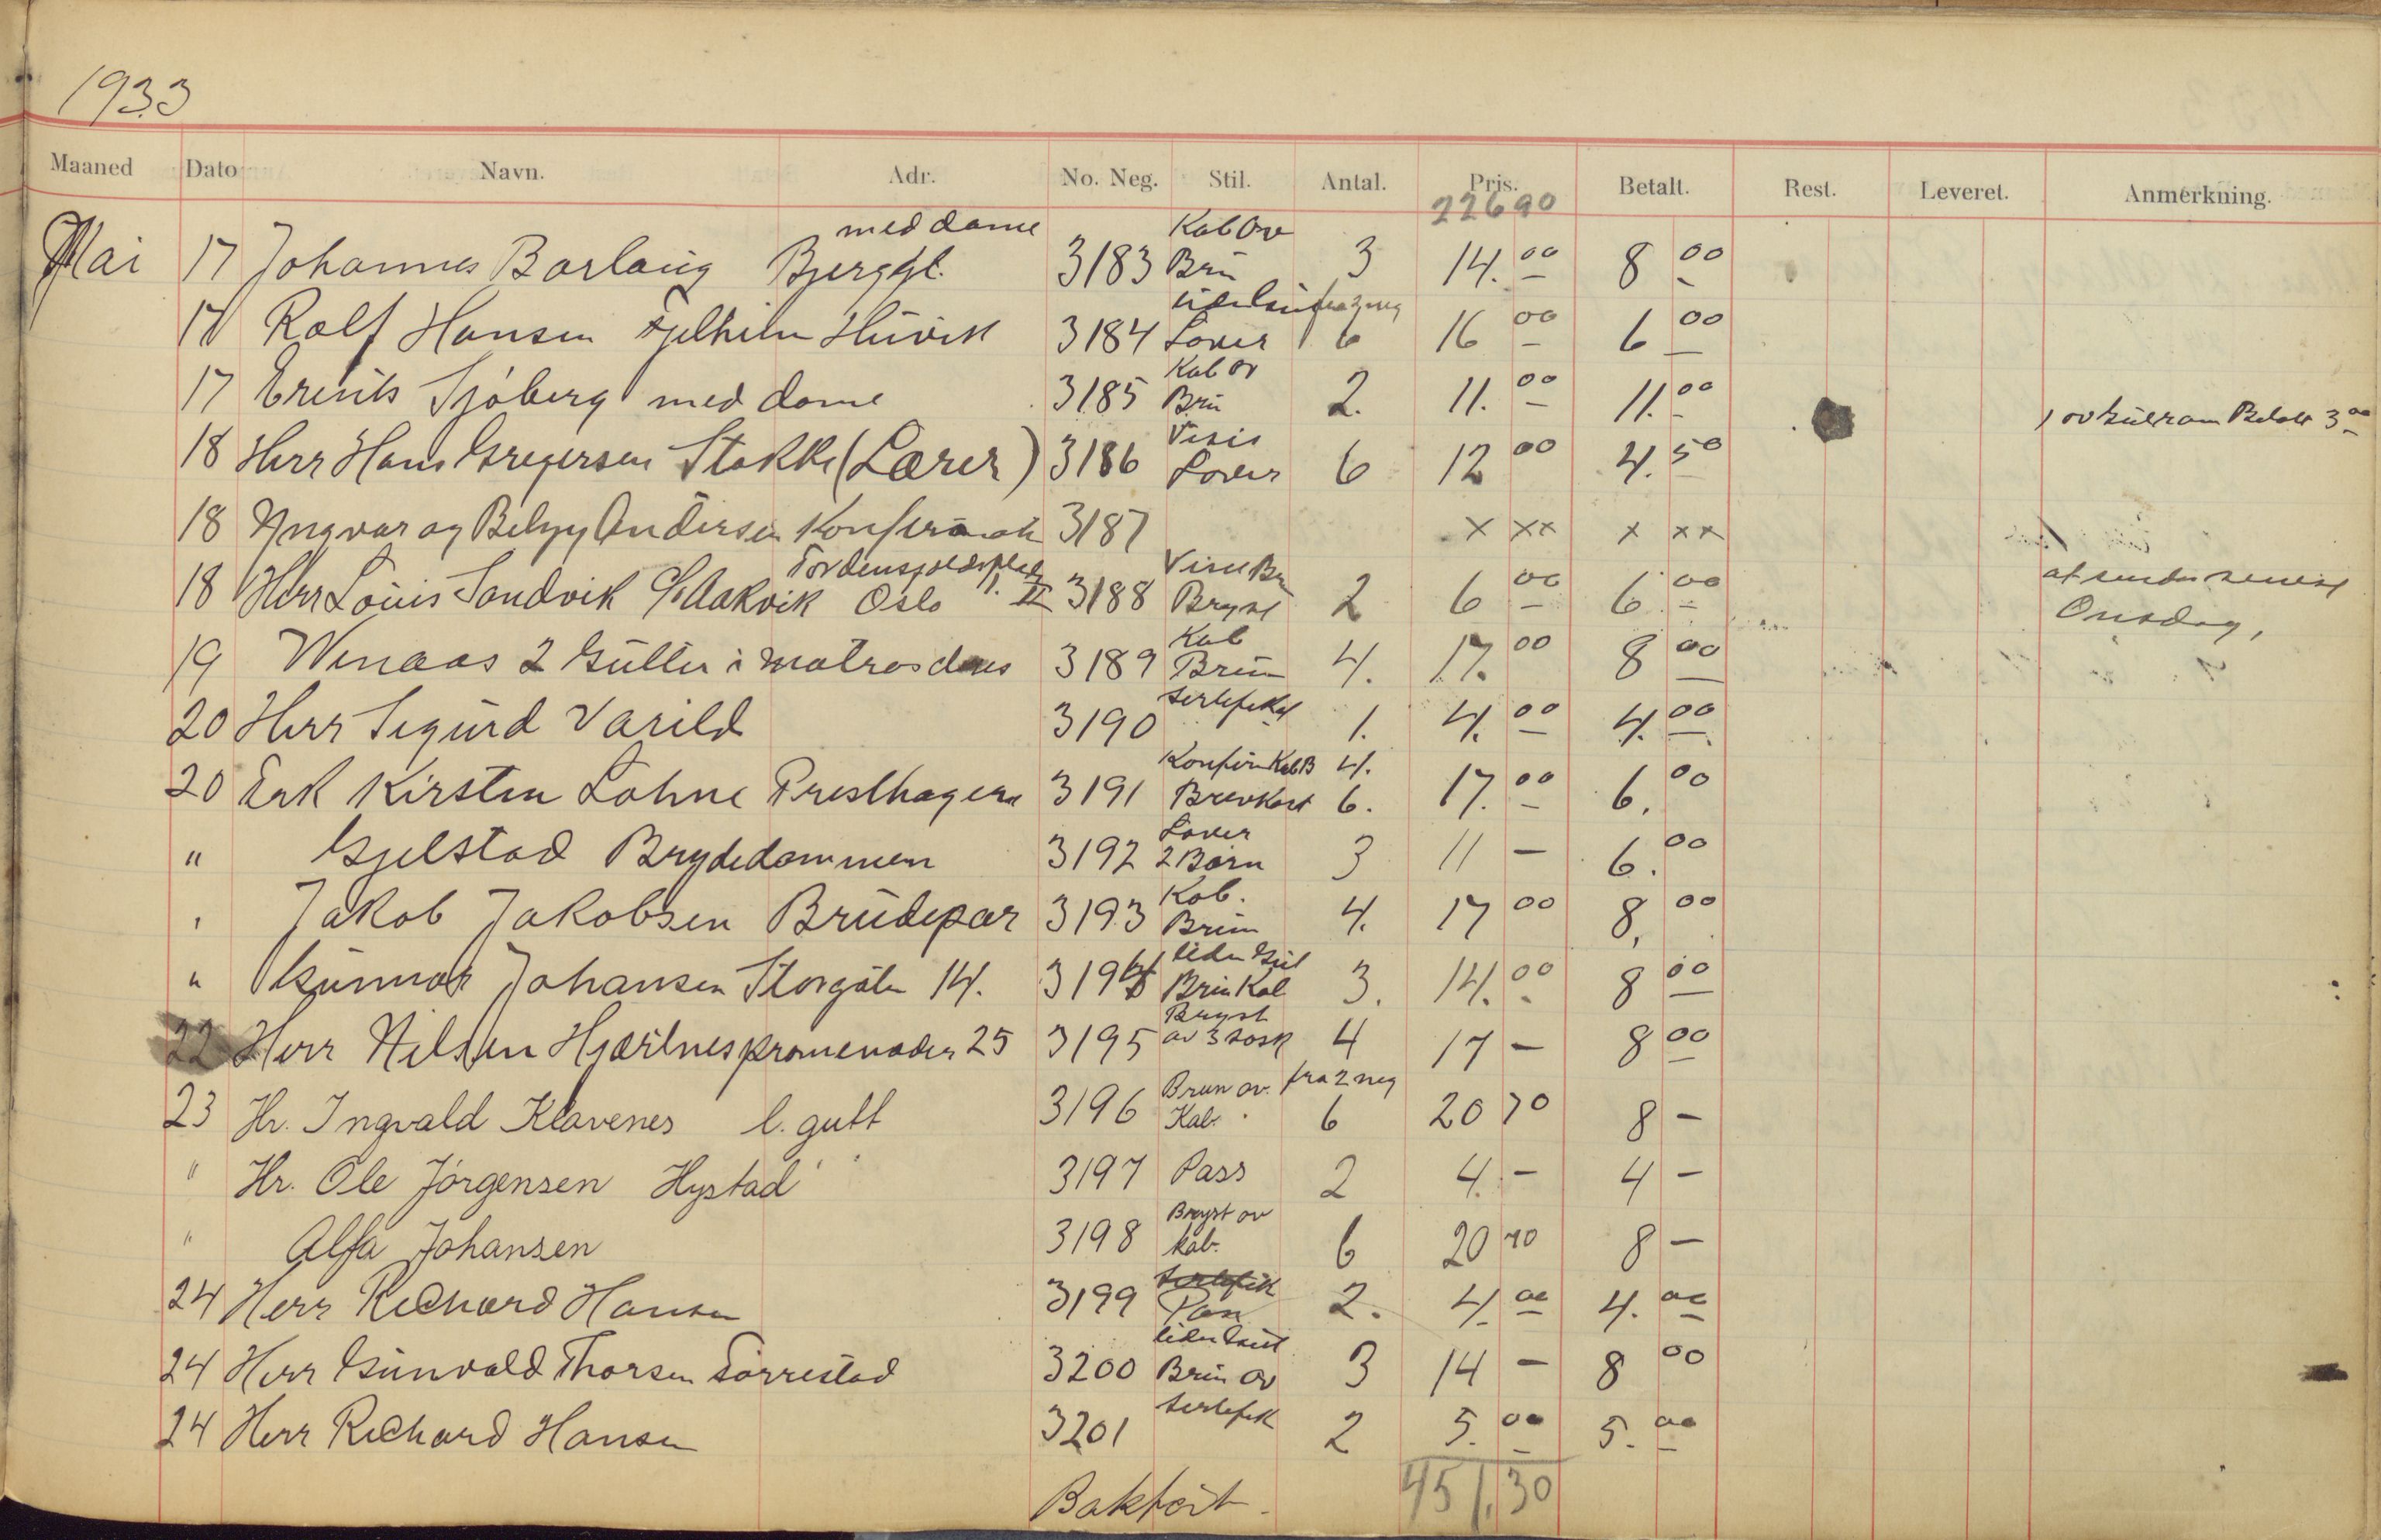 1933
Maaned Dato Navn. Adr. No. Neg. Stil. Antal. Pris. Betalt. Rest. Leveret. Anmerkning.
22690
med dame Kab Ov
Mai 17 Johannes Barlaug Bjerggt. 3183 Brü 3 14.00 8 00
fra 2 neg
17 Rolf Hansen 3184 6 16 00 6 00
Kab Ov
17 Sjøberg med dame 3185 Brü 2. 11.00 11.00
Betalt 3 00
Visit
18 Herr Hans Gregersen Stokke (Lærer) 3186 6 12 00 4.50
18 Yngvar og Andersen 3187 x xx x xx
Visit Br
18 Herr Louis Sandvik C/o Aakvik Oslo II 3188 Bryst 2 6 00 6 00
Onsdag,
Kab
19 Winaas 2 Gutter i matrosdres 3189 Brün 4. 17.00 8 00
sertefikat
20 Herr Sigurd Varild 3190 1. 4.00 4.00
Konfir Kab B 4.
20 Frk Kirsten Lohne Presthagen 3191 Brevkort 6. 17.00 6.00
" Gjelstad Brydedammen 3192 2 Børn 3 11 — 6.00
Kab.
" Jakob Jakobsen Brüdepar 3193 Brün 4. 17 00 8.00
liden Gut
" Gunnar Johansen Storgaten 14. 3194 Brün Kab 3. 14.00 8 00
Bryst
22 Herr Nilsen Hjærtnespromenaden 25 3195 av 3 søsk 4 17 — 8 00
Brun ov. fra 2 neg
23 Hr. Ingvald Klavenes l. gutt 3196 Kab. 6 20 70 8 —
" Hr. Ole Jørgensen Hystad 3197 Pass 2 4.— 4 —
Bryst ov
" Alfa Johansen 3198 kab. 6 20 70 8 —
sertefik
24 Herr Richard Hansen 3199 Pass 2. 4.00 4.00
liden Gut
24 Herr Gunvald Thorsen Torrestad 3200 Brün Ov 3 14 — 8 00
sertefik
24 Herr Richard Hansen 3201 2 5.00 5.00
451.30